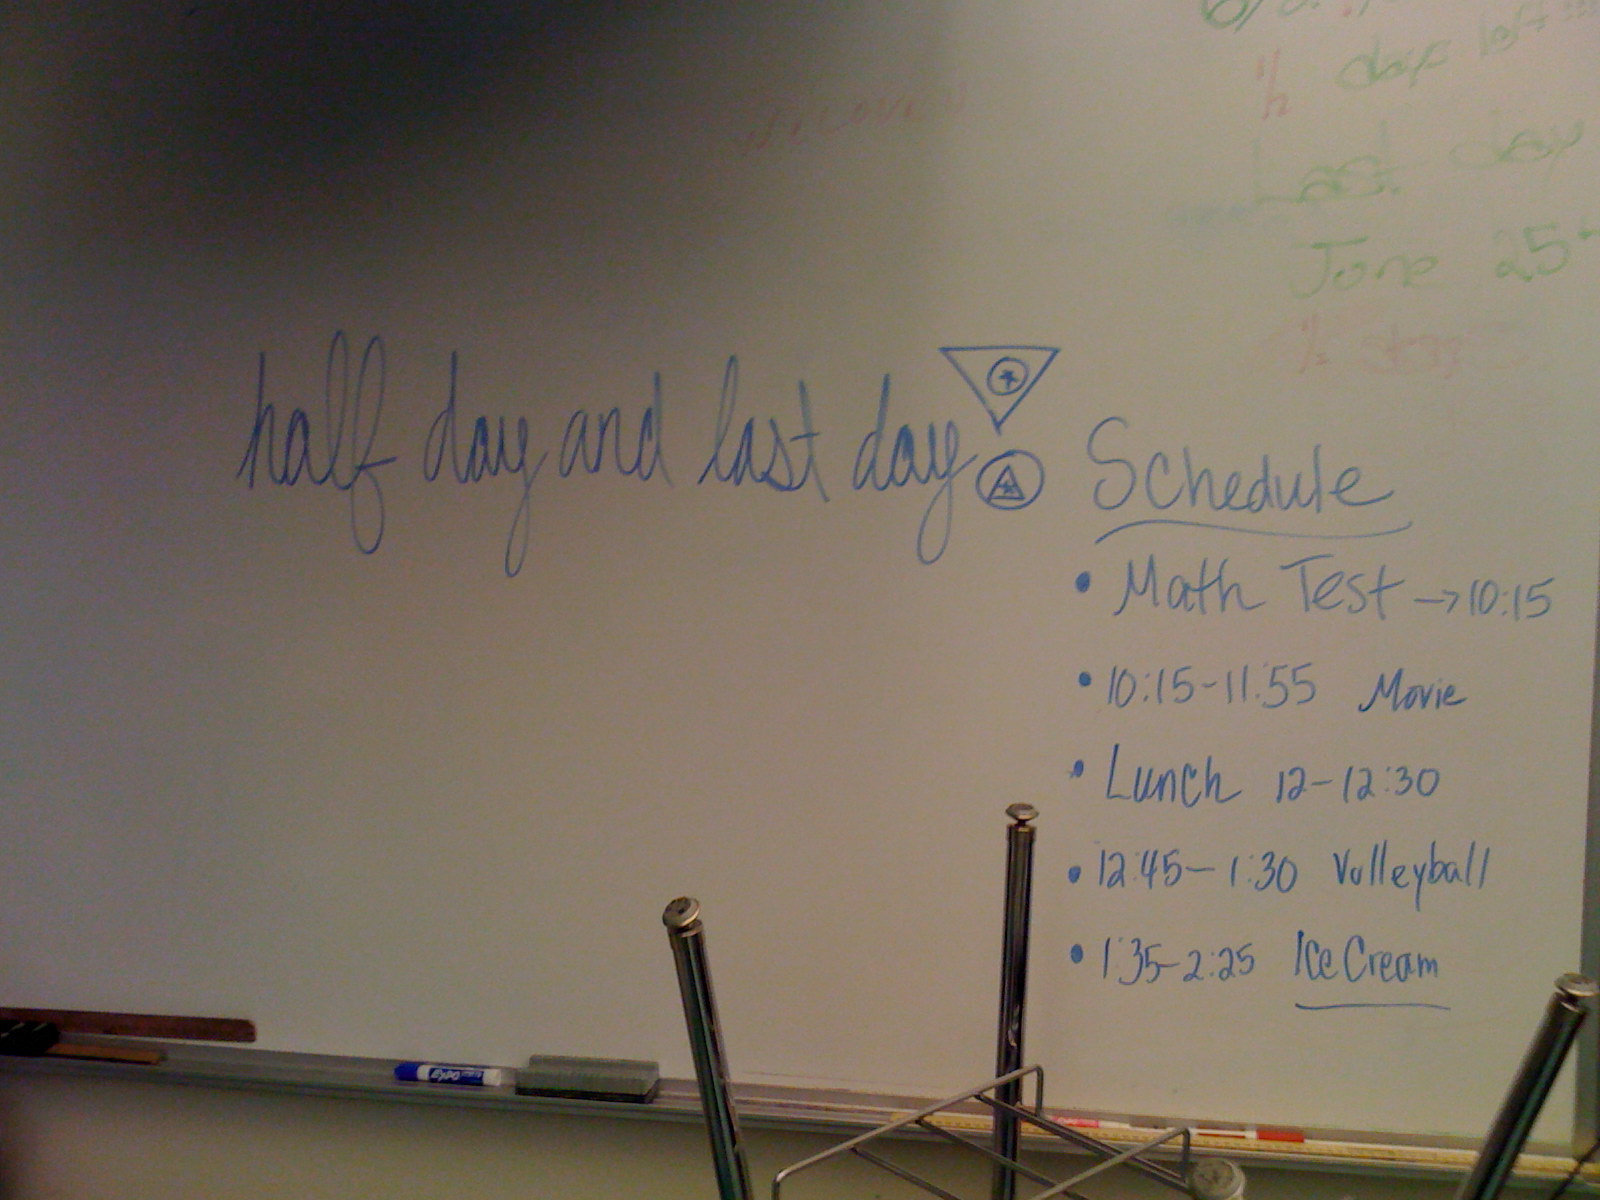 days left
Last day
June 25
half day and last day
Schedule
• Math Test → 10:15
• 10:15-11:55 Movie
• Lunch 12-12:30
• 12:45-1:30 Volleyball
• 1:35-2:25 Ice Cream